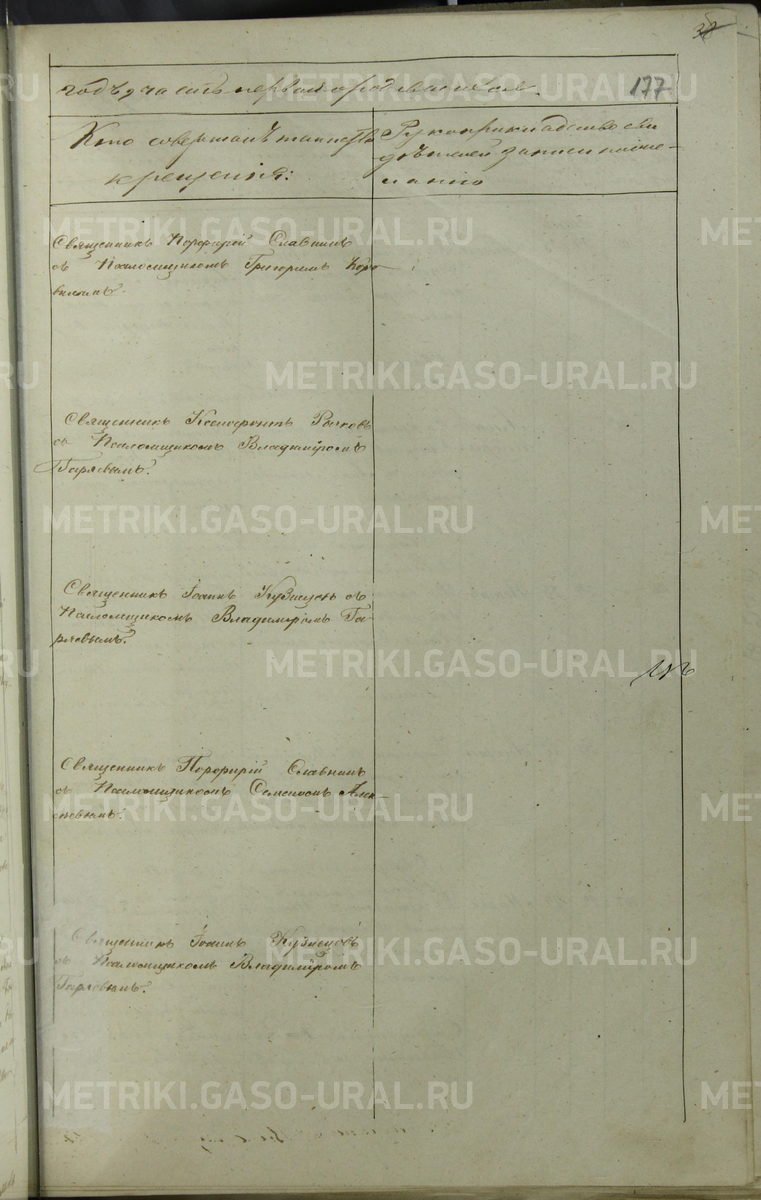 38
177
годъ, часть первая о родившихся.
Кто совершалъ таинство
крещенія:
Рукоприкладство сви
дѣтелей записи по же-
ланію
Священникъ Порфирій Славнинъ
съ Псаломщикомъ Григоріемъ Коро
Священникъ Ксенофонтъ Рычковъ
съ Псаломщикомъ Владиміромъ
Гаряевымъ.
Священникъ Іоаннъ Кузнецовъ съ
Псаломщикомъ Владиміромъ Га-
ряевымъ.
Священникъ Порфирій Славнинъ
съ Псаломщикомъ Семеномъ Алек-
сѣевымъ.
Священникъ Іоаннъ Кузнецовъ
съ Псаломщикомъ Владиміромъ
Гаряевымъ.
METRIKI.GASO-URAL.RU